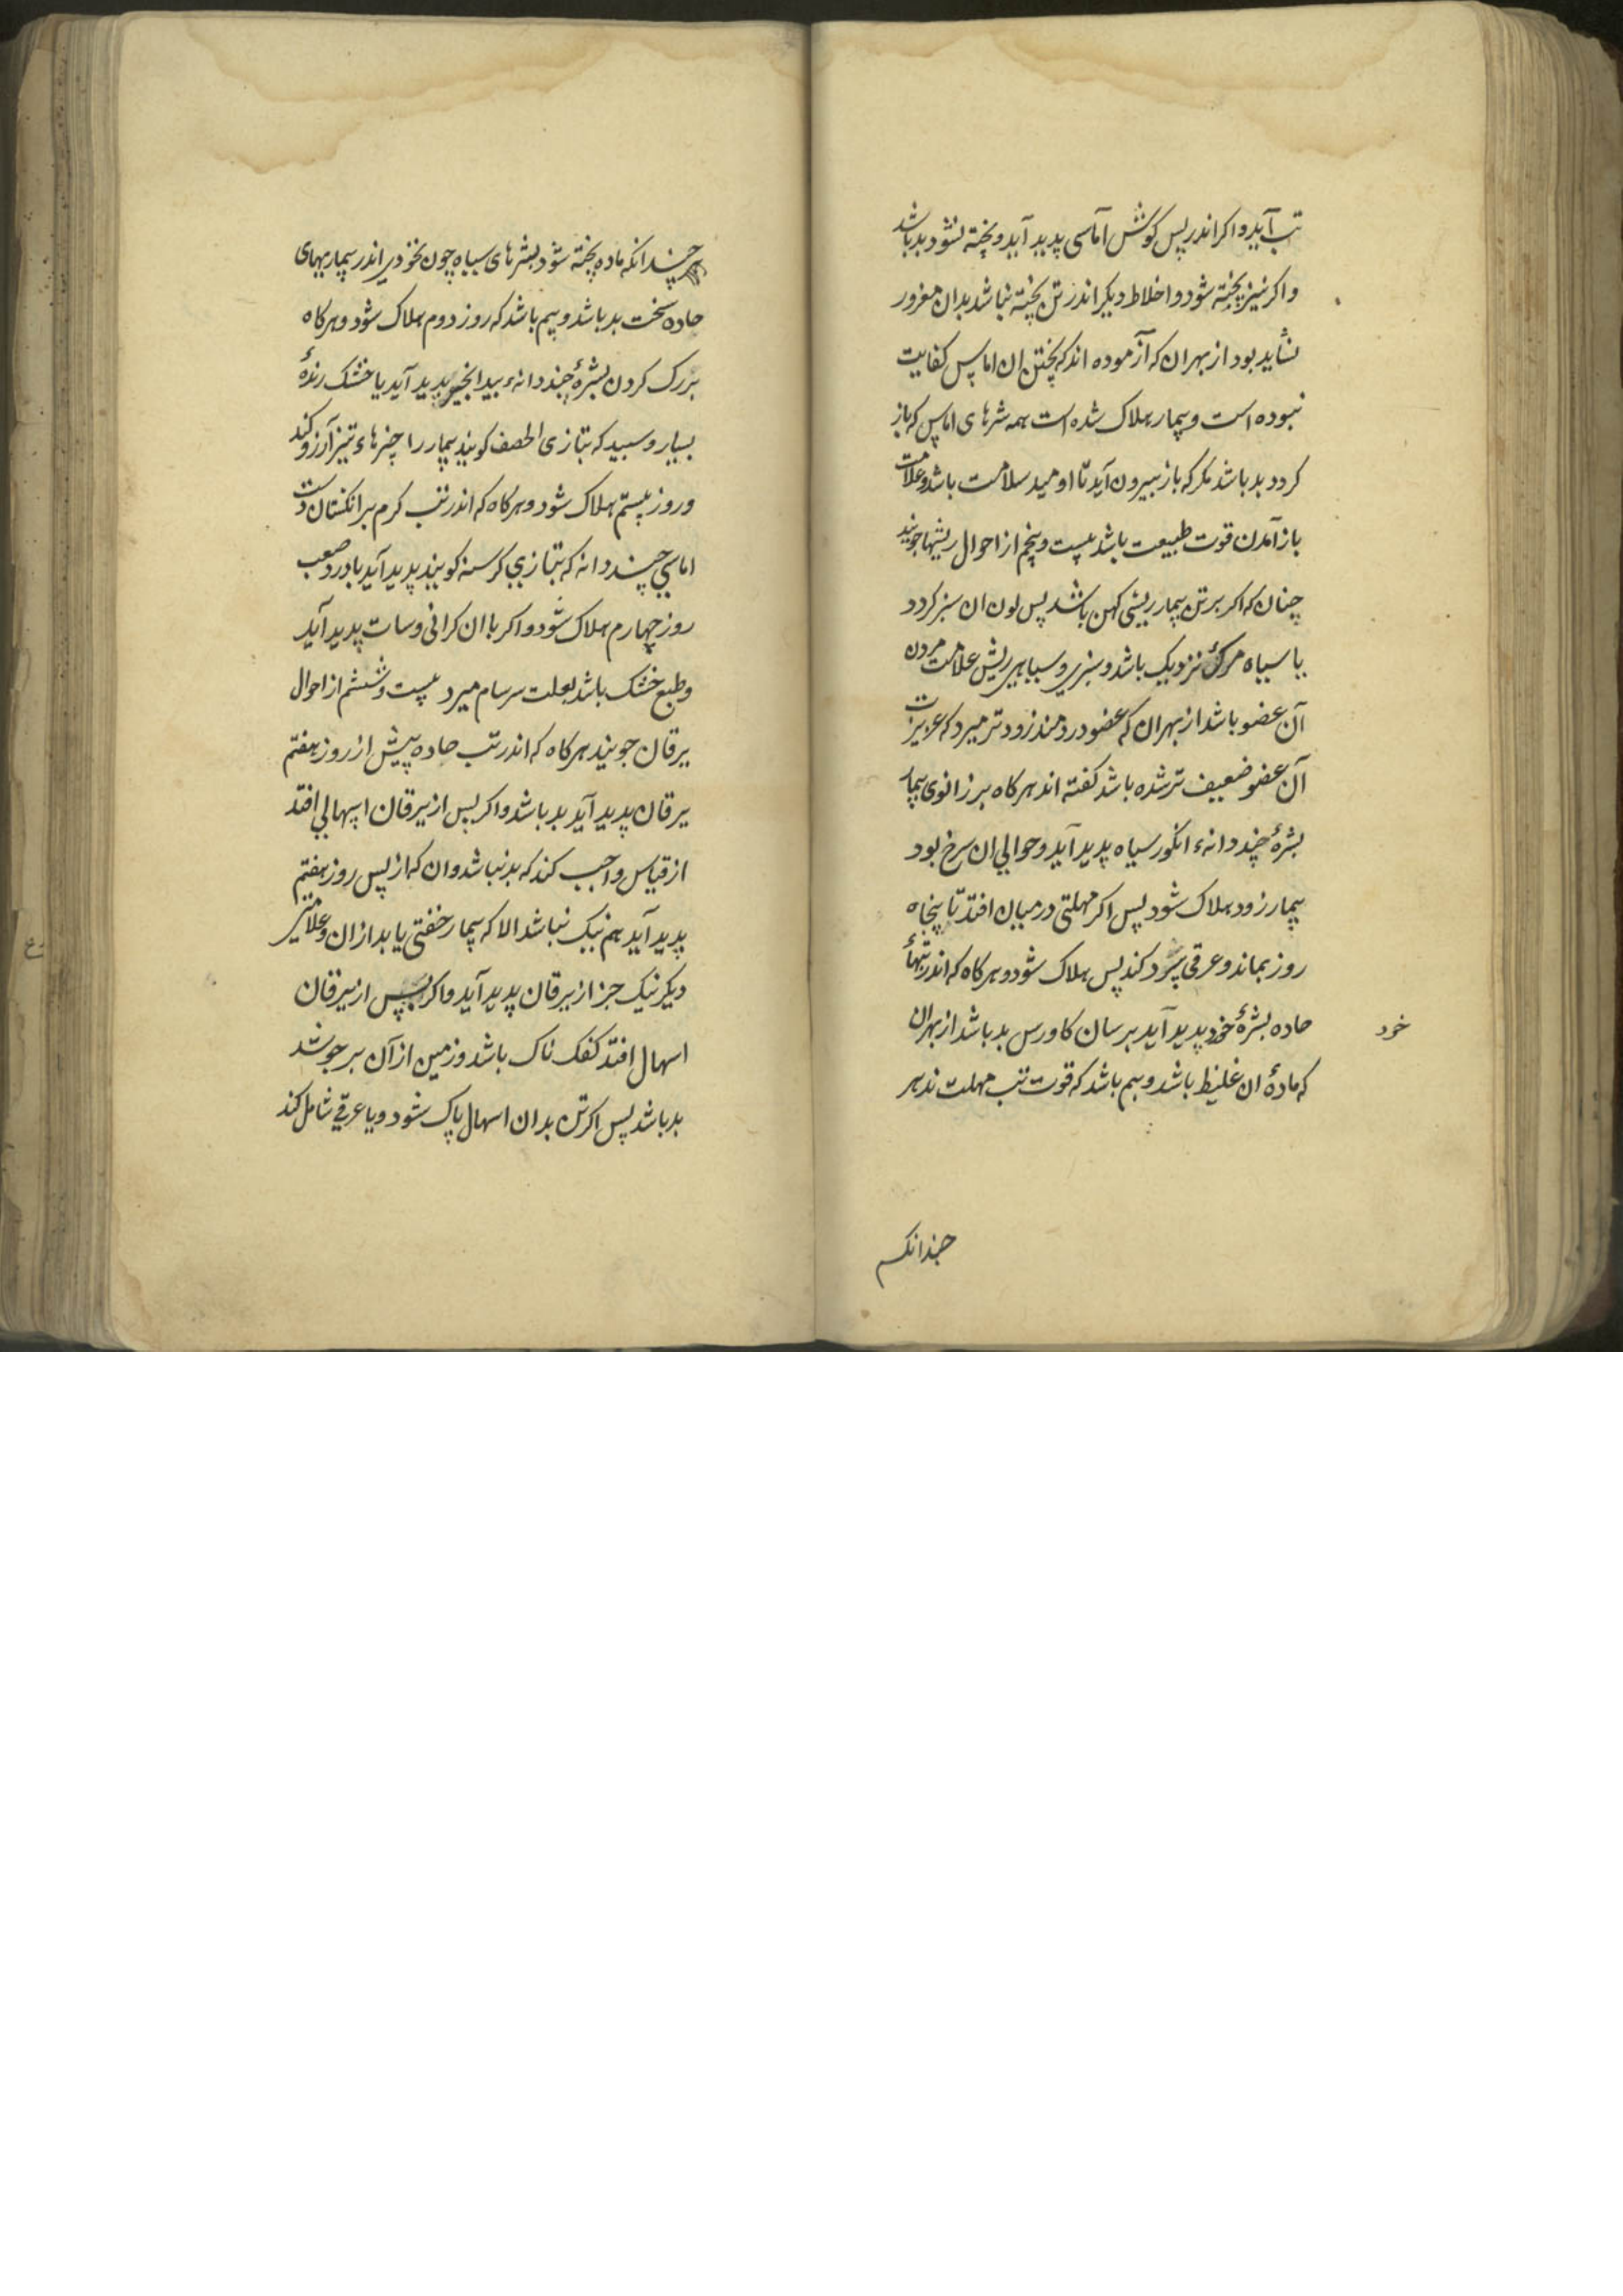 تب آید و اکر اندر پس کوش آماسی پدید آید و پخته نشود بد باشد
و اکر نیز پخته شود و اخلاط دیکر اندر تن پخته نباشد بدان مغرور
نشاید بود از بهر ان که آزموده اند که پختن ان اماس کفایت
نبوده است و بیمار هلاک شده است همه شرهای اماس که باز
کردد بد باشد مکر که باز بیرون آید تا اومید سلامت باشد و علامت
باز آمدن قوت طبیعت باشد بیست و پنجم از احوال ریشها جویند
چنان که اکر بر تن بیمار ریشی کهن باشد پس لون ان سبز کردد
یا سیاه مرک نزدیک باشد و سبزی و سیاهی ریش علامت مردن
آن عضو باشد از بهر ان که عضو دردمند زودتر میرد که غریزت
آن عضو ضعیف تر شده باشد کفته اند هر کاه بر زانوی بیمار
بشرهٔ چند دانهء انکور سیاه پدید آید و حوالی ان سرخ بود
بیمار زود هلاک شود پس اکر مهلتی در میان افتد تا پنجاه
روز بماند و عرقی سرد کند پس هلاک شود و هر کاه که اندر تبهاء
حاده بشرهٔ خرد پدید آید بر سان کاورس بد باشد از بهر ان
خرد
که مادهٔ ان غلیظ باشد و بیم باشد که قوت تب مهلت ندهر
چندانکه
چندانکه ماده پخته شود بشرهای سیاه چون نخود اندر بیماریهای
حاده سخت بد باشد و بیم باشد که روز دوم هلاک شود و هر کاه
بر رک کردن بشرهٔ چند دانهء بید انجیر پدید آید با خشک
بسیار و سبید که بتازی الحصف کویند بیمار را چیزهاء تیز آرزو کند
و روز بیستم هلاک شود و هر کاه که اندر تب کرم بر انکشتان دست
اماسی چند دانه که بتازی کرسنه کویند پدید آید با درد صعب
روز چهارم هلاک شود و اکر با ان کرانی و سات پدید آید
و طبع خشک باشد بعلت سرسام میرد بیست و ششم از احوال
یرقان جویند هر کاه که اندر تب حاده پیش از روز هفتم
یرقان پدید آید بد باشد و اکر پس از یرقان اسهالی افتد
از قیاس واجب کند که بد نباشد و ان که از پس روز هفتم
پدید آید هم نیک نباشد الا که بیمار خفتی یابد ازان و علامتی
دیکر نیک جز از یرقان پدید آید و اکر پس از یرقان
اسهال افتد کفک ناک باشد و زمین از آن بر جوشد
بد باشد پس اکر تن بدان اسهال پاک شود و یا عرقی شامل کند